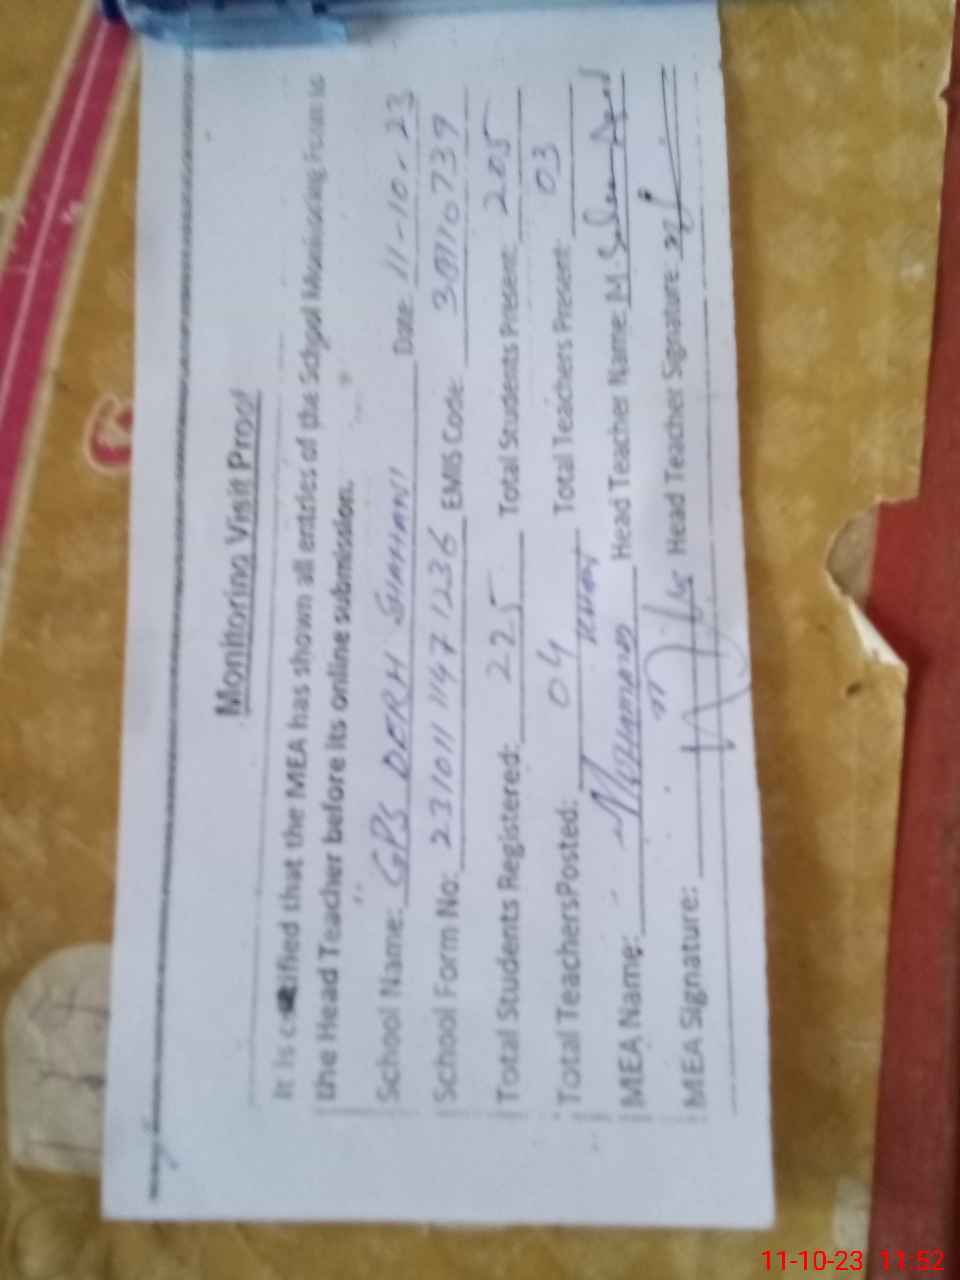 Monitoring Visit Proof
It is certified that the MEA has shown all entries of the School Monitoring Form to
the Head Teacher before its online submission.
School Name: GPS DERH GHHANI Date: 11-10-23
School Form No: 231011 1147 1236 EMIS Code:
Total Students Registered: 225 Total Students Present: 205
Total TeachersPosted: 04 Total Teachers Present: 03
MEA Name: MOHAMMAD KHAN Head Teacher Name: M
MEA Signature: Head Teacher Signature:
11-10-23 11:52